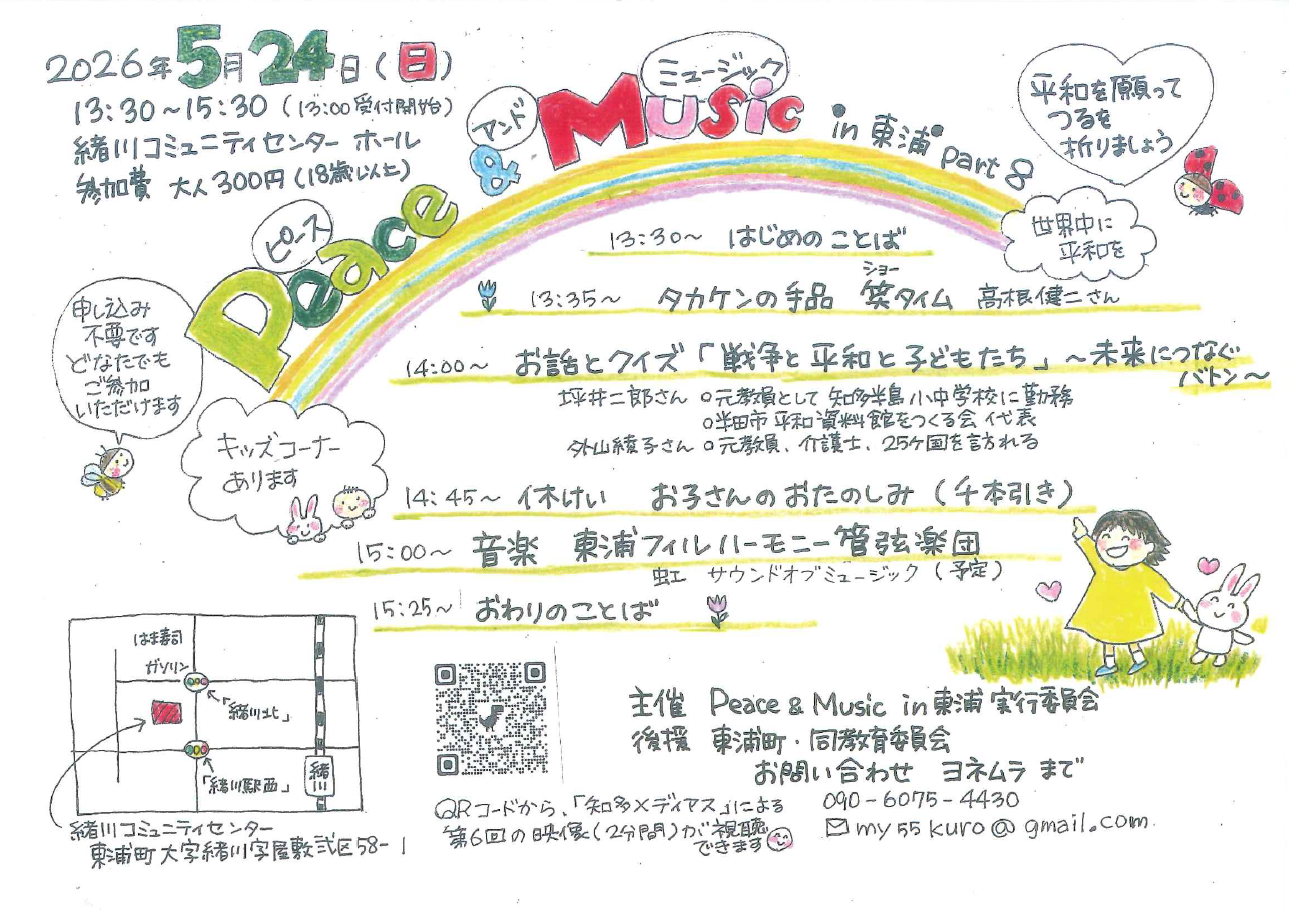 2026年5月24日(日)
13:30～15:30 (13:00受付開始)
緒川コミュニティセンター ホール
参加費 大人300円(18歳以上)
Peace & Music in 東浦 part 8
ピース
アンド
ミュージック
平和を願って
つるを
折りましょう
世界中に
平和を
申し込み
不要です
どなたでも
ご参加
いただけます
キッズコーナー
あります
13:30～ はじめのことば
13:35～ タカケンの手品 笑タイム 高根健二さん
ショー
14:00～ お話とクイズ「戦争と平和と子どもたち」～未来につなぐ
バトン～
坪井二郎さん ○元教員として 知多半島 小中学校に勤務
○半田市 平和資料館をつくる会 代表
外山綾子さん ○元教員、介護士、25ヶ国を訪れる
14:45～ 休けい お子さんのおたのしみ (千本引き)
15:00～ 音楽 東浦フィルハーモニー管弦楽団
虹 サウンドオブミュージック (予定)
15:25～ おわりのことば
はま寿司
ガソリン
「緒川北」
「緒川駅西」
緒川
緒川コミュニティセンター
東浦町大字緒川字屋敷弐区58-1
QRコードから、「知多×ディアス」による
第6回の映像(2分間)が視聴
できます
主催 Peace & Music in 東浦 実行委員会
後援 東浦町・同教育委員会
お問い合わせ ヨネムラ まで
090-6075-4430
my55kuro@gmail.com